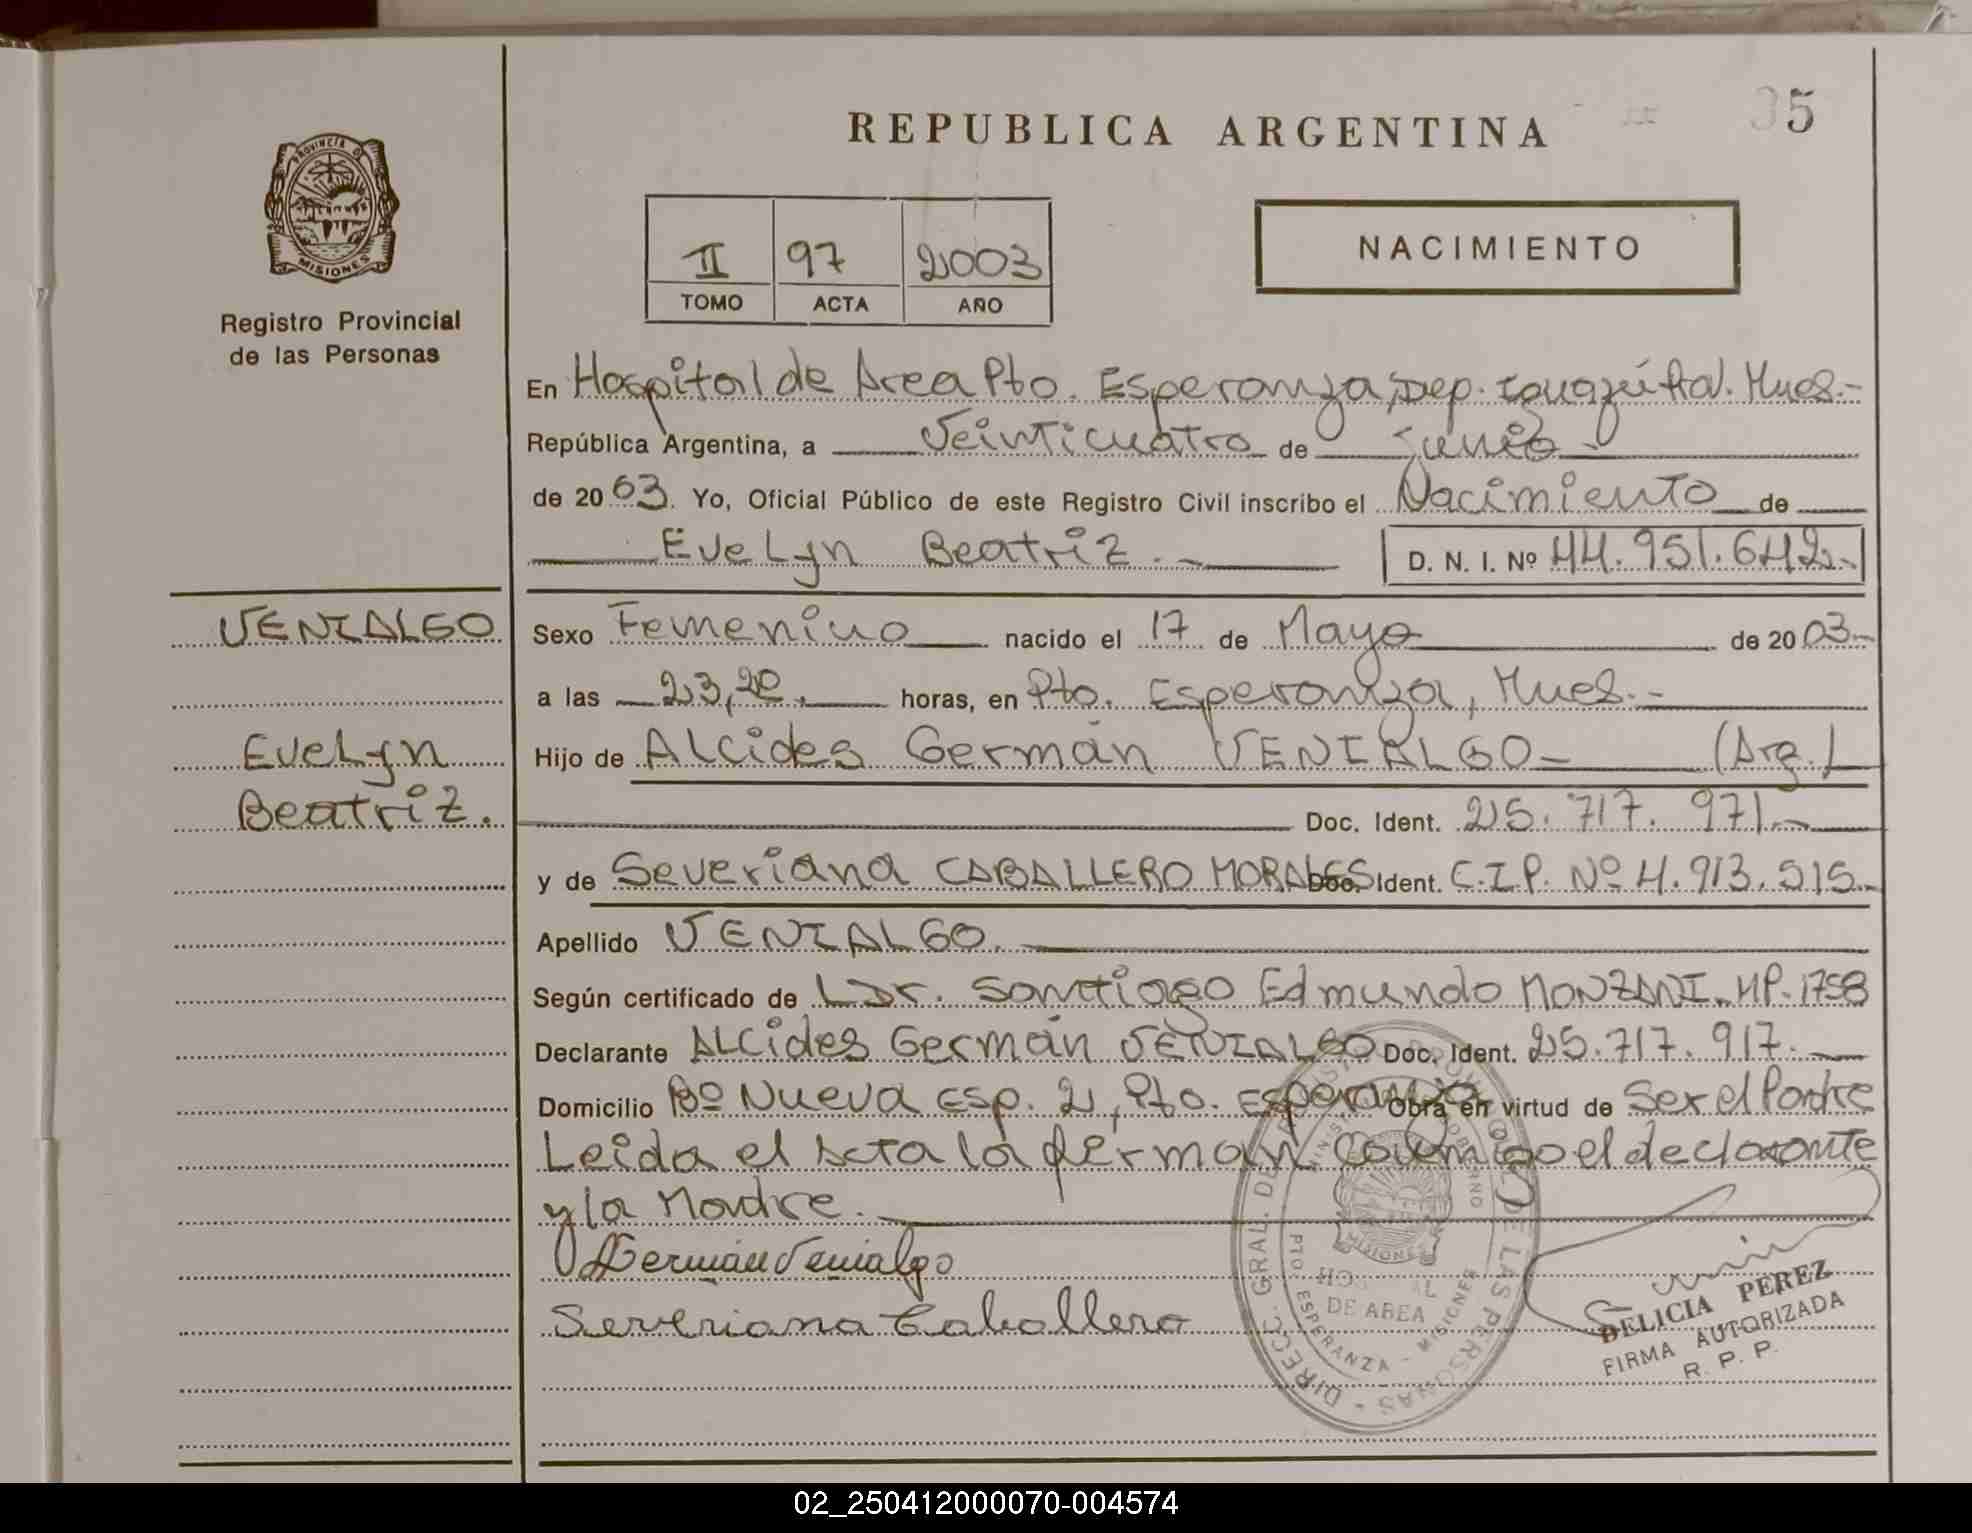 REPUBLICA ARGENTINA
35
PROVINCIA DE
MISIONES
Registro Provincial
de las Personas
II 97 2003
TOMO ACTA AÑO
NACIMIENTO
En Hospital de Area Pto. Esperanza, Dep. Iguazú Mnes.-
República Argentina, a Veinticuatro de Junio
de 2003. Yo, Oficial Público de este Registro Civil inscribo el Nacimiento de
Evelyn Beatriz.- D. N. I. Nº 44.951.642.-
VENIALGO
Evelyn
Beatriz.
Sexo Femenino nacido el 17 de Mayo de 2003-
a las 23,20. horas, en Pto. Esperanza, Mnes.-
Hijo de Alcides Germán VENIALGO- (Arg.)
Doc. Ident. 25.717.971.-
y de Severiana CABALLERO MORALES Doc. Ident. C.I.P. Nº 4.913.515.-
Apellido VENIALGO.-
Según certificado de Dr. Santiago Edmundo MONZANI. MP. 1758
Declarante Alcides Germán VENIALGO Doc. Ident. 25.717.917.-
Domicilio Bº Nueva Esp. 2, Pto. Esperanza Obra en virtud de Ser el Padre
Leida el Acta la firman Conmigo el declarante
y la Madre.-
Germán Venialgo
Severiana Caballero
DIRECC. GRAL. DEL REGISTRO PROVINCIAL DE LAS PERSONAS -
MINISTERIO GOBIERNO
MISIONES
HOSPITAL
DE AREA
PTO. ESPERANZA - MISIONES
DELICIA PEREZ
FIRMA AUTORIZADA
R. P. P.
02_250412000070-004574